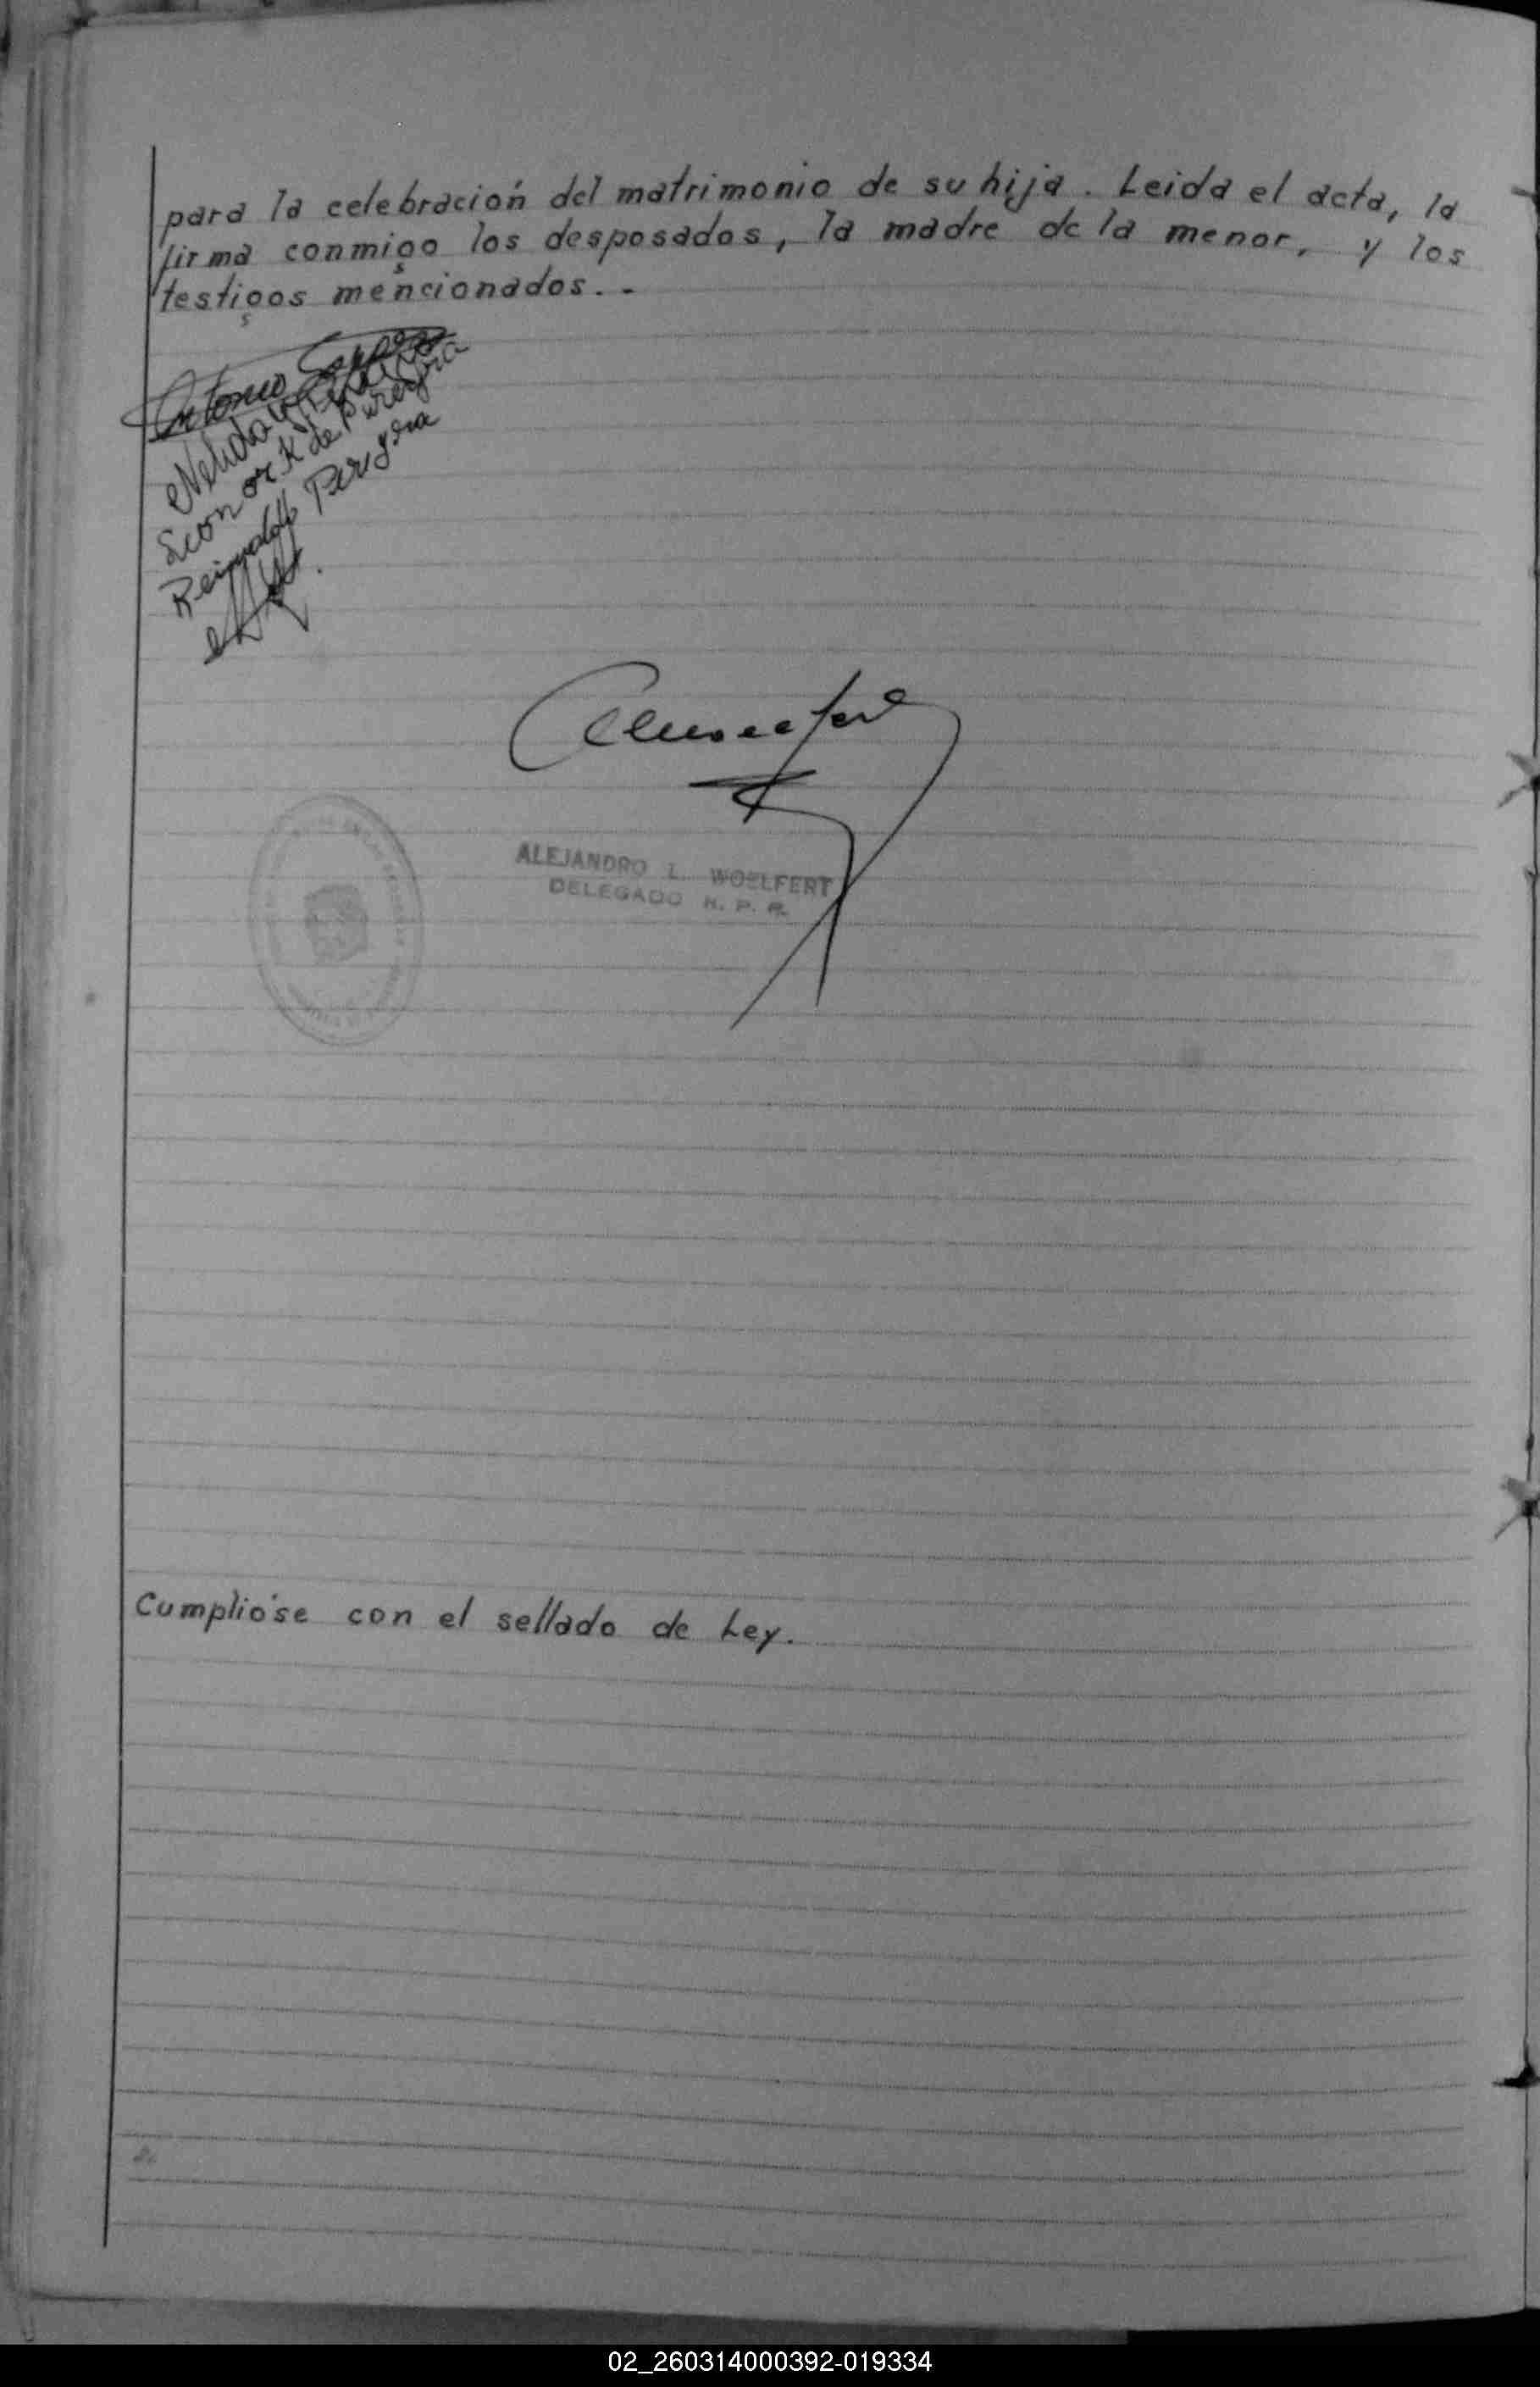 para la celebración del matrimonio de su hija. Leida el acta, la
firma conmigo los desposados, la madre de la menor, y los
testigos mencionados. -
Antonio
Nelida
Leonor K de Pereyra
Reinaldo Pereyra
ALEJANDRO L. WOELFERT
DELEGADO H. P. R.
Cumplióse con el sellado de Ley.
02_260314000392-019334